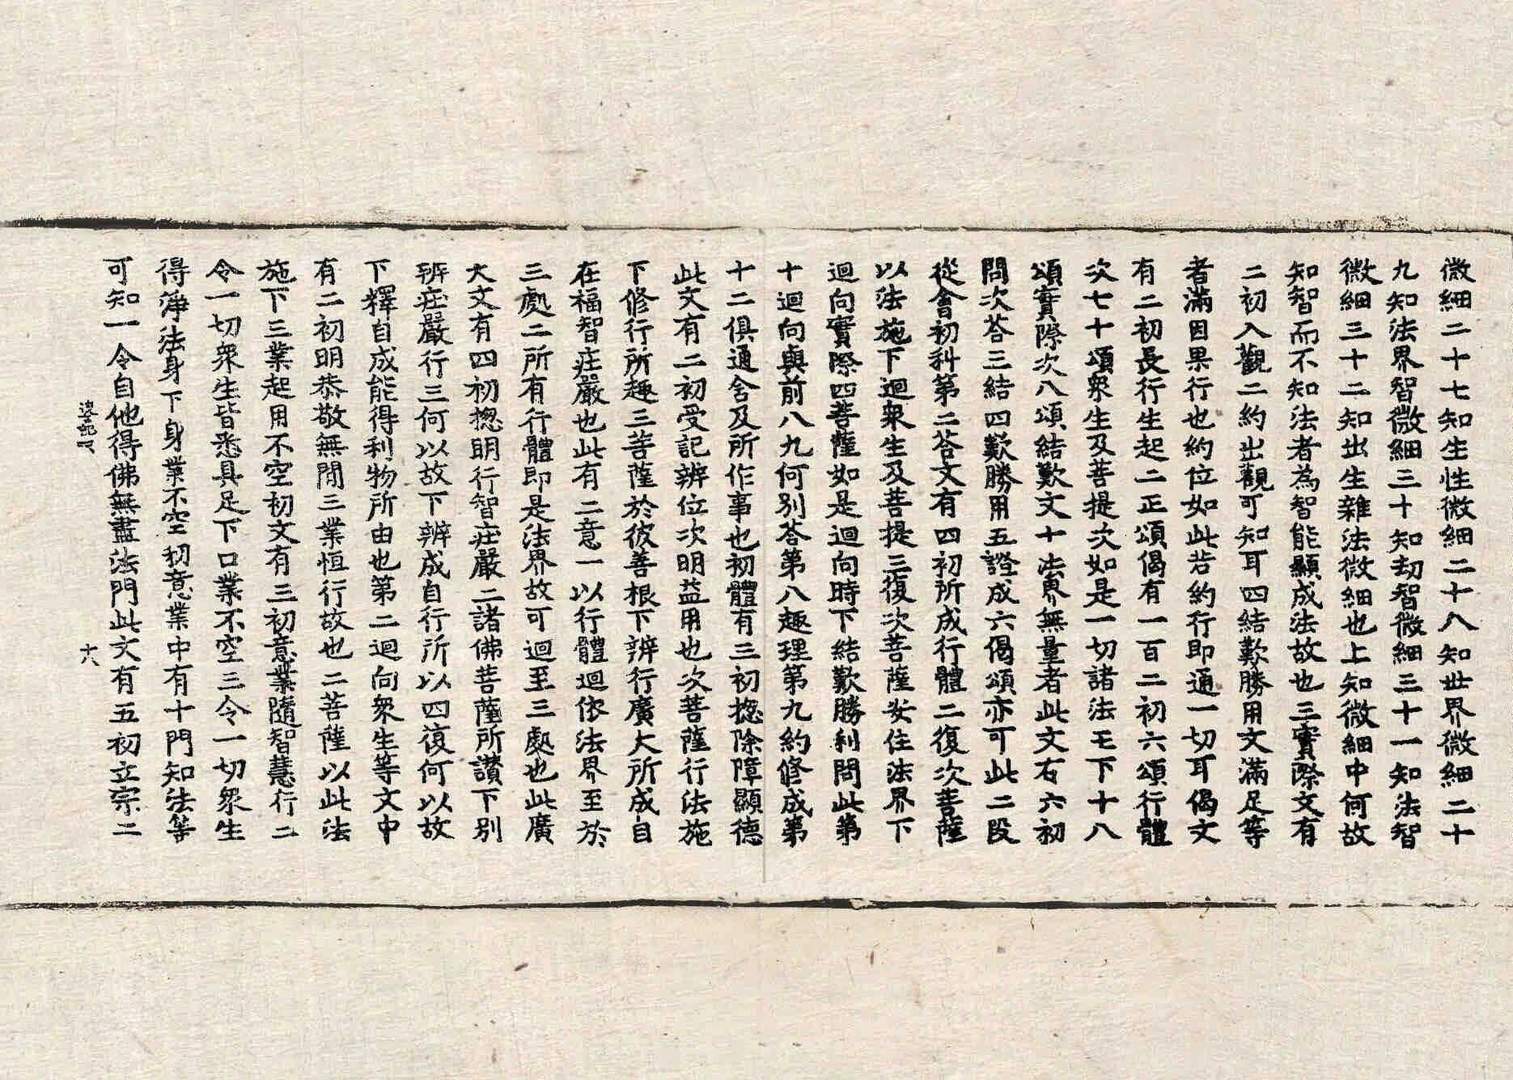 微細二十七知生性微細二十八知世界微細二十
九知法界智微細三十知劫智微細三十一知法智
微細三十二知出生雜法微細也上知微細中何故
知智而不知法者為智能顯成法故也三實際文有
二初入觀二約出觀可知耳四結歎勝用文滿足等
者滿因果行也約位如此若約行即通一切耳偈文
有二初長行生起二正頌偈有一百二初六頌行體
次七十頌衆生及菩提次如是一切諸法王下十八
頌實際次八頌結歎文十法界無量者此文右六初
問次荅三結四歎勝用五證成六偈頌亦可此二段
從會初科第二荅文有四初所成行體二復次菩薩
以法施下迴衆生及菩提三復次菩薩安住法界下
迴向實際四菩薩如是迴向時下結歎勝利問此第
十迴向與前八九何別荅第八趣理第九約修成第
十二俱通舍及所作事也初體有三初捴除障顯德
此文有二初受記辨位次明益用也次菩薩行法施
下修行所趣三菩薩於彼善根下辨行廣大所成自
在福智莊嚴也此有二意一以行體迴依法界至於
三處二所有行體即是法界故可迴至三處也此廣
大文有四初捴明行智莊嚴二諸佛菩薩所讃下別
辨莊嚴行三何以故下辨成自行所以四復何以故
下釋自成能得利物所由也第二迴向衆生等文中
有二初明恭敬無間三業恒行故也二菩薩以此法
施下三業起用不空初文有三初意業隨智慧行二
令一切衆生皆悉具足下口業不空三令一切衆生
得淨法身下身業不空初意業中有十門知法等
可知一令自他得佛無盡法門此文有五初立宗二
十八